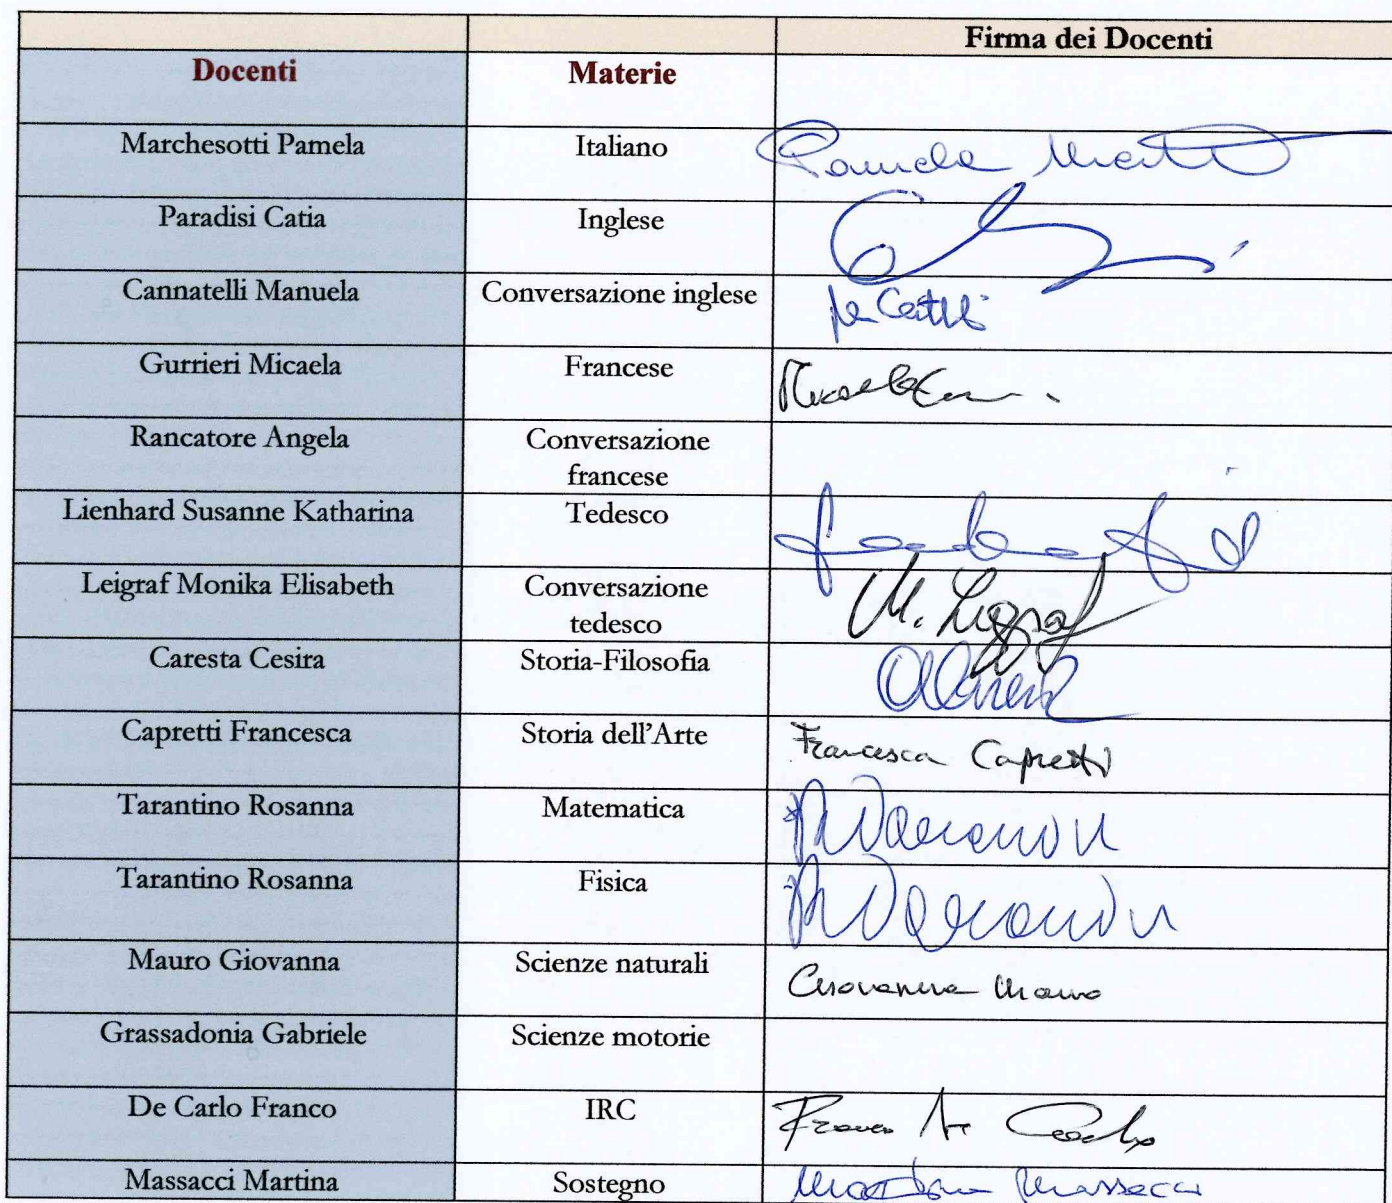 Firma dei Docenti
Docenti Materie
Marchesotti Pamela Italiano Pamela
Paradisi Catia Inglese
Cannatelli Manuela Conversazione inglese
Gurrieri Micaela Francese
Rancatore Angela Conversazione
francese
Lienhard Susanne Katharina Tedesco
Leigraf Monika Elisabeth Conversazione M. Leigraf
tedesco
Caresta Cesira Storia-Filosofia
Capretti Francesca Storia dell'Arte Francesca Capretti
Tarantino Rosanna Matematica
Tarantino Rosanna Fisica
Mauro Giovanna Scienze naturali Giovanna Mauro
Grassadonia Gabriele Scienze motorie
De Carlo Franco IRC Franco De Carlo
Massacci Martina Sostegno Martina Massacci